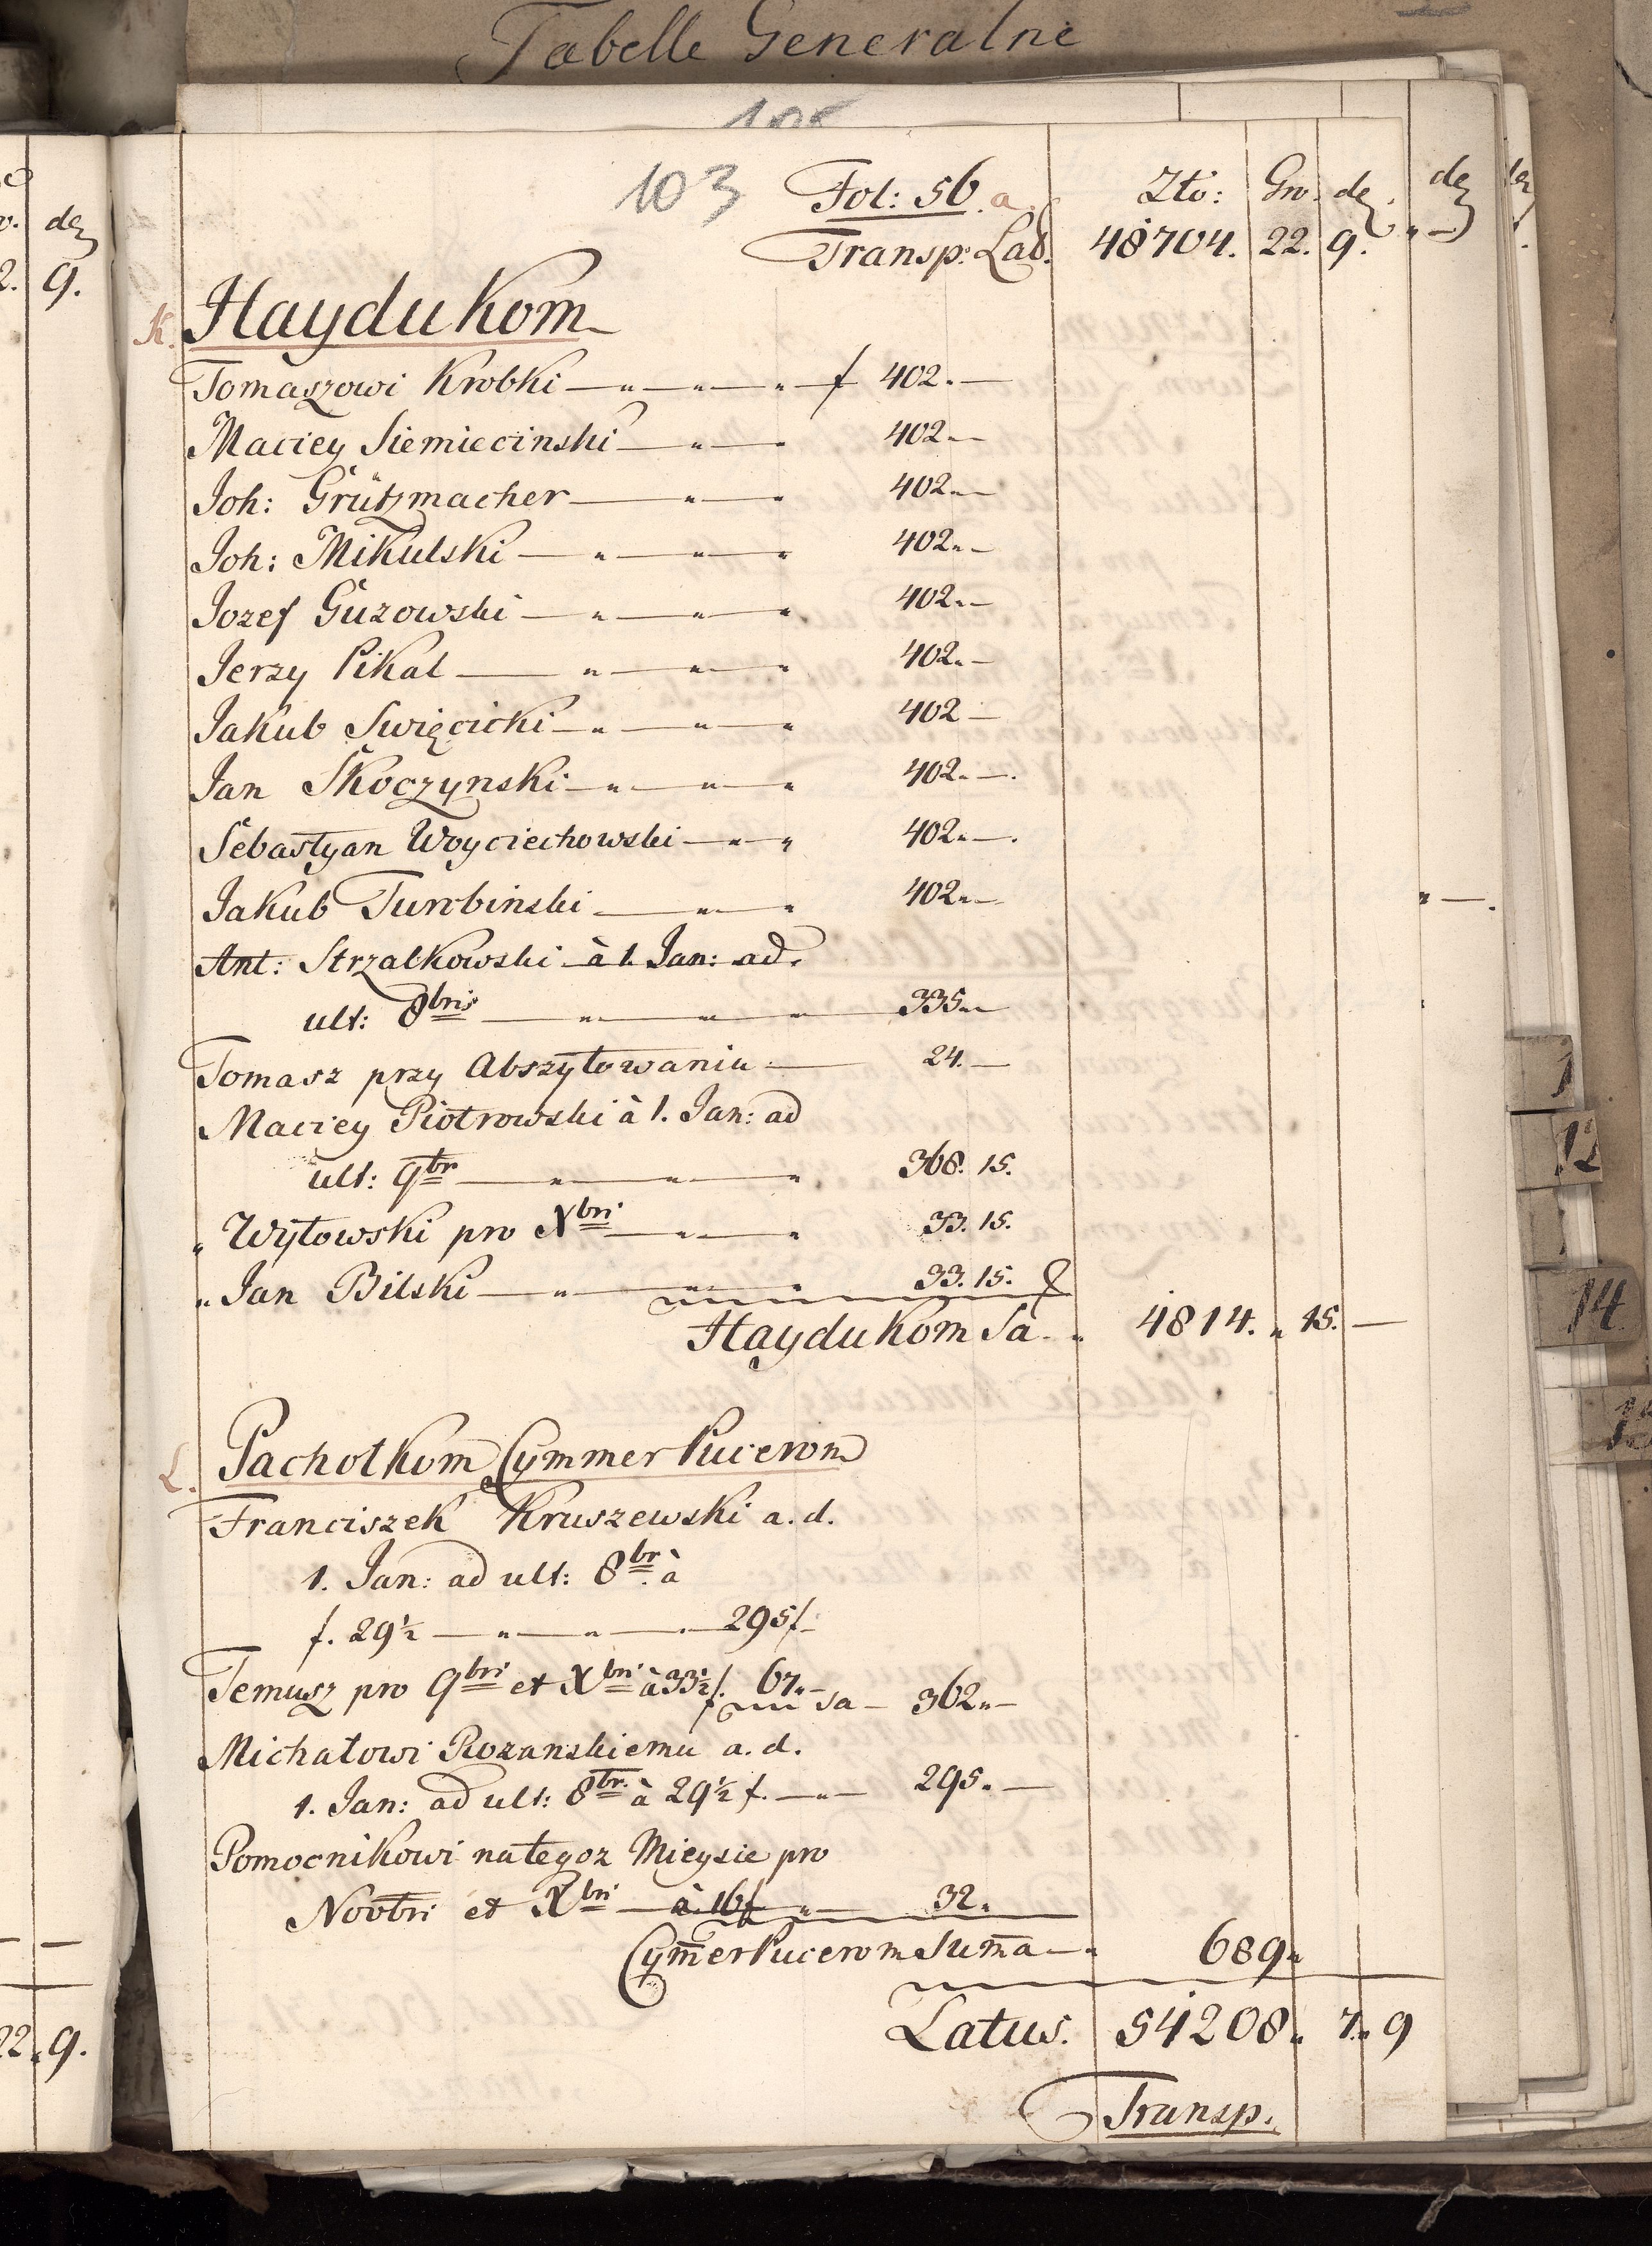 Tabelle Generalne
103 Fol: 56. a. Zło: Gro. den
Transp: Lat. 48704. 22. 9.
K. Haydukom
Tomaszowi Krobki — " — " — " — f 402. —
Maciey Siemiecinski — " — " 402. —
Joh: Grützmacher — " — " 402. —
Joh: Mikulski — " — " — " 402. —
Jozef Guzowski — " — " — " 402. —
Jerzy Pikal — " — " — " 402. —
Jakub Swięcicki — " — " — " 402 —
Jan Skoczynski — " — " — " 402. —
Sebastyan Woyciechowski — " — " 402. —
Jakub Turobinski — " — " 402. —
Ant: Strzałkowski à 1. Jan: ad
ult: 8bris — " — " — " — 335. —
Tomasz przy Abszytowaniu — 24. —
Maciey Piotrowski à 1. Jan: ad
ult: 9br — " — " — " 368. 15.
" Wÿtowski pro Xbri — " — " 33. 15.
" Jan Bilski — " — " — " 33. 15.
Haydukom Sa. " 4814. " 15. —
L. Pachołkom Cymmer Pucerom
Franciszek Kruszewski a. d.
1. Jan: ad ult: 8br à
f. 29½ — " — " — " — 295 f.
Temusz pro 9bri et Xbri à 33½ f. 67. — Sa — 362. —
Michałowi Rozanskiemu a. d.
1. Jan: ad ult: 8br. à 29½ f. — " — 295. —
Pomocnikowi na tegoz Mieysce pro
Novbri et Xbri — à 16 f — " — 32.
Cym̄erPucerom Sum̄a — " 689 "
Latus. 54208. 7. 9
Transp.